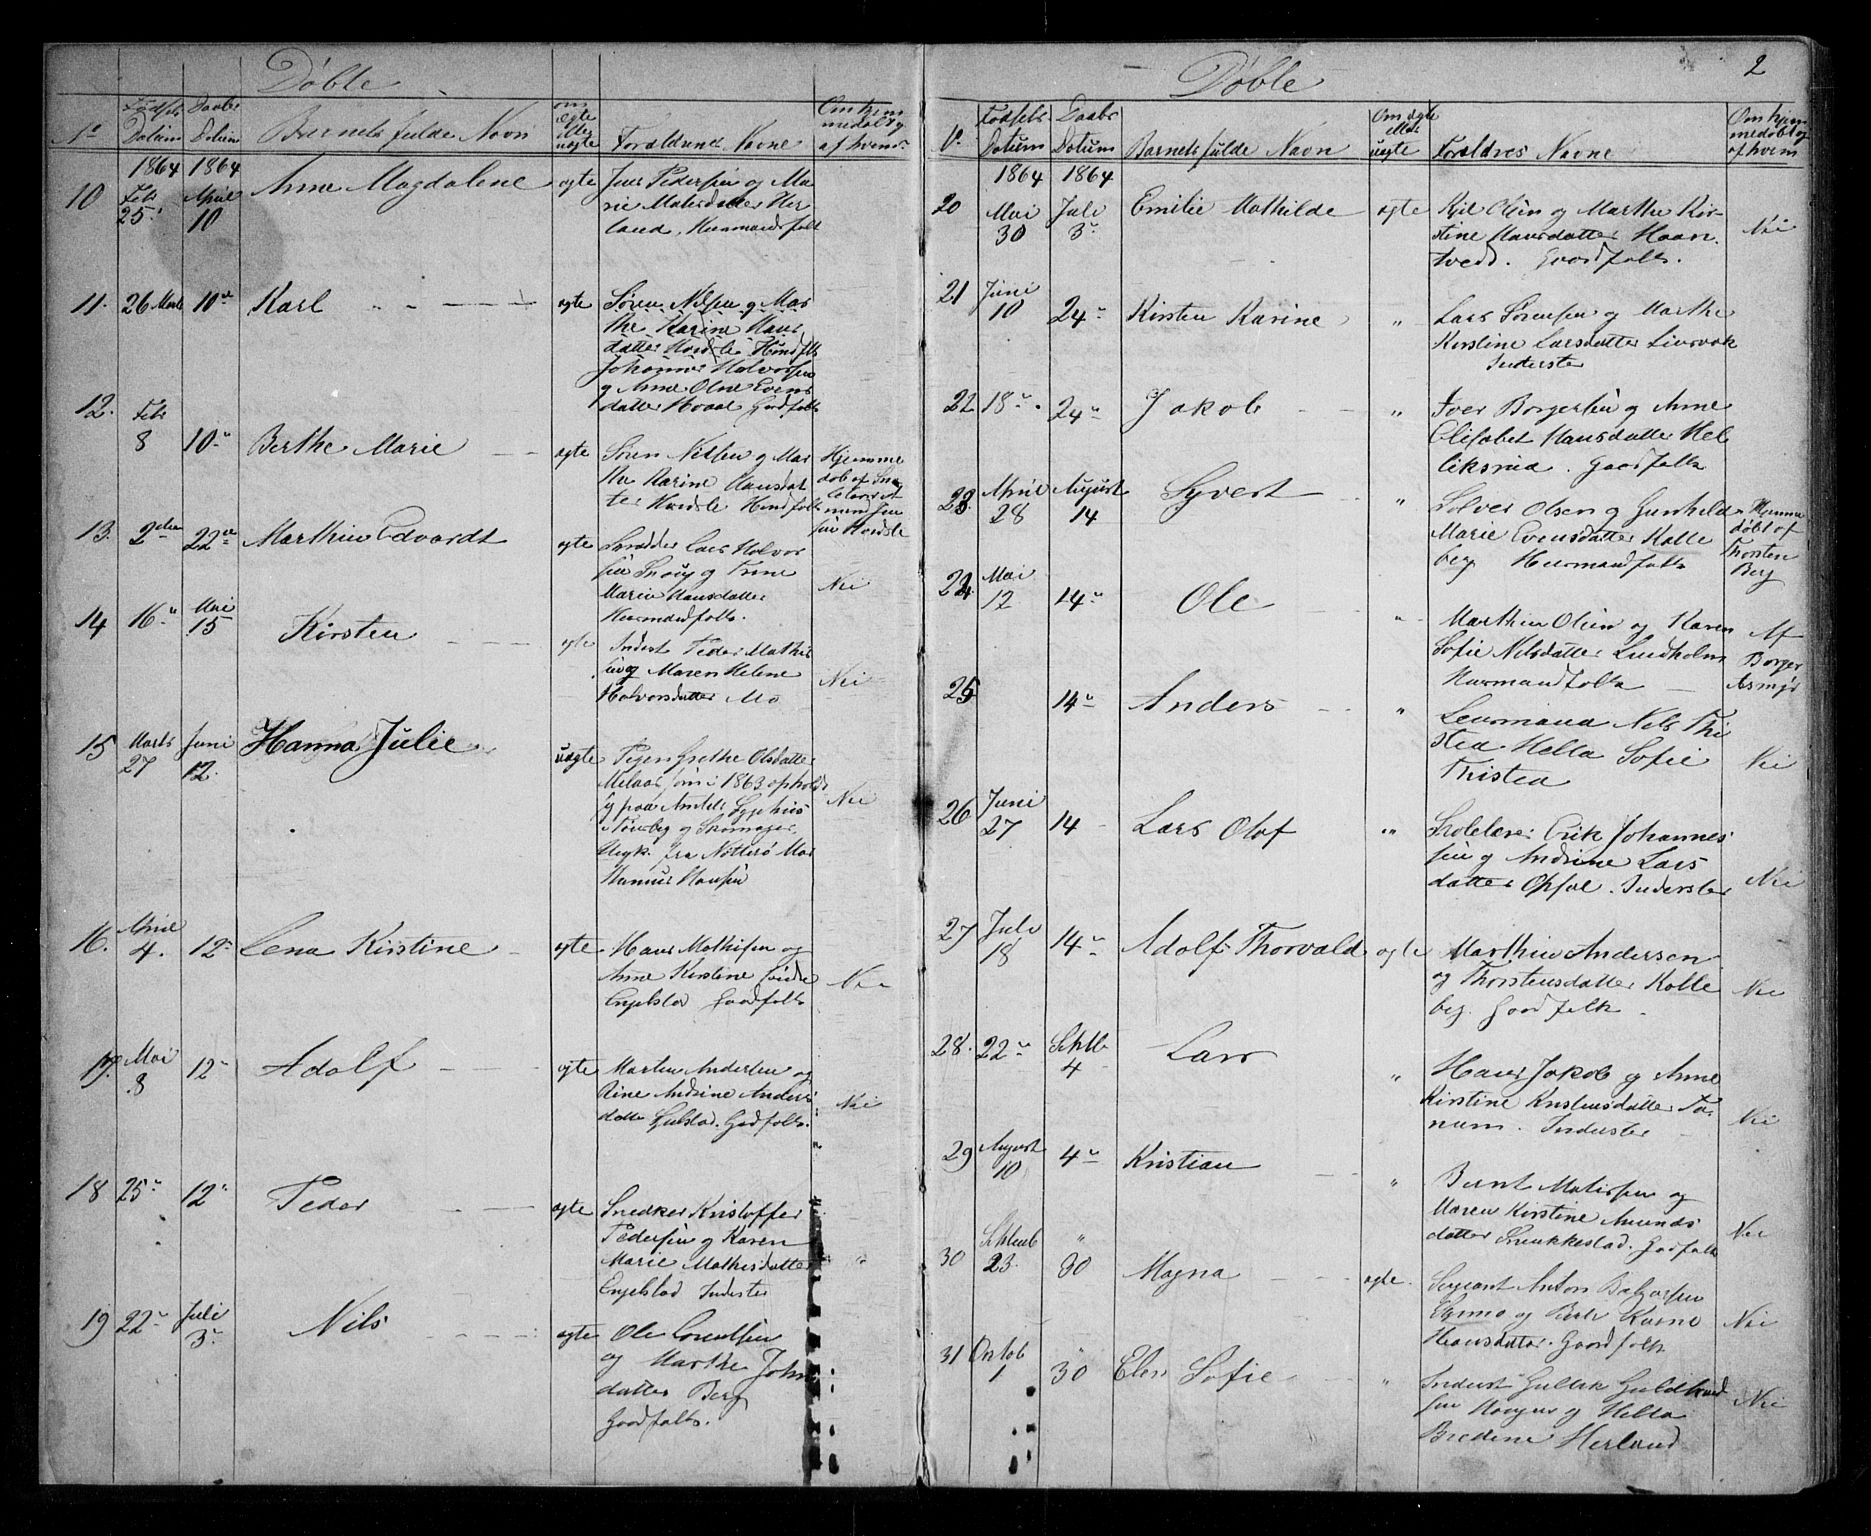 Døbte
No
Fødsels Datum
Daabs Datum
Barnets fulde Navn
om ægte eller uægte
Forældrenes Navne
Om hjemmedøbt og af hvem
1864 1864
10 Febr 25. April 10 Anne Magdalene ægte Jens Pedersen og Ma
rie Matisdatter Her
land, Huusmandsfolk
11. 26 Marts 10de Karl ægte Søren Nilsen og Mar
the Karine Hans
datter
Johannes Halvorsen
og Anne Olne Evens
datter Hovat Gaardfolk
12. Febr 8 10" Berthe Marie ægte Søren Nilsen og Mar
the Karine Hansdat
ter
Hjemme
døbt af
13. 2den 22de Marthin Edvardt ægte Skrædder Lars Halvor
sen og Trine
Marie Hansdatter
Huusmandsfolk.
Nei
14 16" Mai 15 Kirsten ægte Inderst Peder Mathis
sen og Maren Helene
Halvorsdatter Mo
Nei
15 Marts 27 Juni 12. Hanna Julie uægte Pigen Grethe Olsdatter
Melaas, som i 1863 opholdt
sig paa Amtets Sygehus
i Tønsberg og Skomager
Ungk. fra Nøtterø Mar
Hansen
Nei
16. April 4. 12" Lena Kirstine ægte Hans Mathisen og
Anne Kirstine
Engelstad Gaardfolk
Nei
17. Mai 8 12" Adolf ægte Morten Andersen og
Andrine Anders
datter Gulstad. Gaardfolk.
Nei
18 25" 12" Peder ægte Snedker Kristoffer
Pedersen og Karen
Marie Mathisdatter
Engelstad Inderster
"
19 22" Juli 3" Nils ægte Ole Lorentsen
og Marthe Johns
datter Berg
Gaardfolk.
Døbte
2
No.
Fødsels Datum
Daabs Datum
Barnets fulde Navn
Om ægte eller uægte
Forældres Navne
Om hjemmedøbt og af hvem
1864 1864
20 Mai 30 Juli 3" Emilie Mathilde ægte Kjel Olsen og Marthe Kir
stine Hansdatter Haan
tvedt. Gaardfolk.
Nei
21 Juni 10 24" Kirsten Karine " Lars Sørensen og Marthe
Kirstine Larsdatter
Inderster
22 18". 24" Jakob " Iver Borgersen og Anne
Elisabet Hansdatter Hel
liksrud. Gaardfolk
23 April 28 August 14 Syvert " Solver Olsen og Gunhild
Marie Evensdatter Kolle
berg Huusmandfolk
Hjemme
døbt af
Thorsten
Berg
24. Mai 12 14" Ole " Marthin Olsen og Karen
Sofie Nilsdatter Lindholm
Huusmandfolk
Af
Borger
Asmyr
25 14" Anders " Lensmand Nils Thi
sted Hella Sofie
Thisted
Nei
26 Juni 27 14 Lars Olaf " Skolelærer Erik Johannes
sen og Andrine Lars
datter Opsal. Inderster
Nei
27 Juli 18 14" Adolf Thorvald ægte Marthin Andersen
og Thorstensdatter Kolle
berg. Gaardfolk.
Nei
28. 22" Septb 4 Lars " Hans Jakob og Anne
Kirstine Kristensdatter Ta
num. Inderster
Nei
29 August 10 4" Kristian " Bernt Matissen og
Maren Kirstine Amunds
datter Snukkestad. Gaardfolk
Nei
30 Septemb 23. " 30 Magna ægte. Sergeant Anton Balzersen
og Karine
Hansdatter. Gaardfolk
Nei
31 Octob 1 " 30 Elen Sofie " Inderst Gullik Guldbrand
sen Haugen og Hella
Bredine Herland
Nei